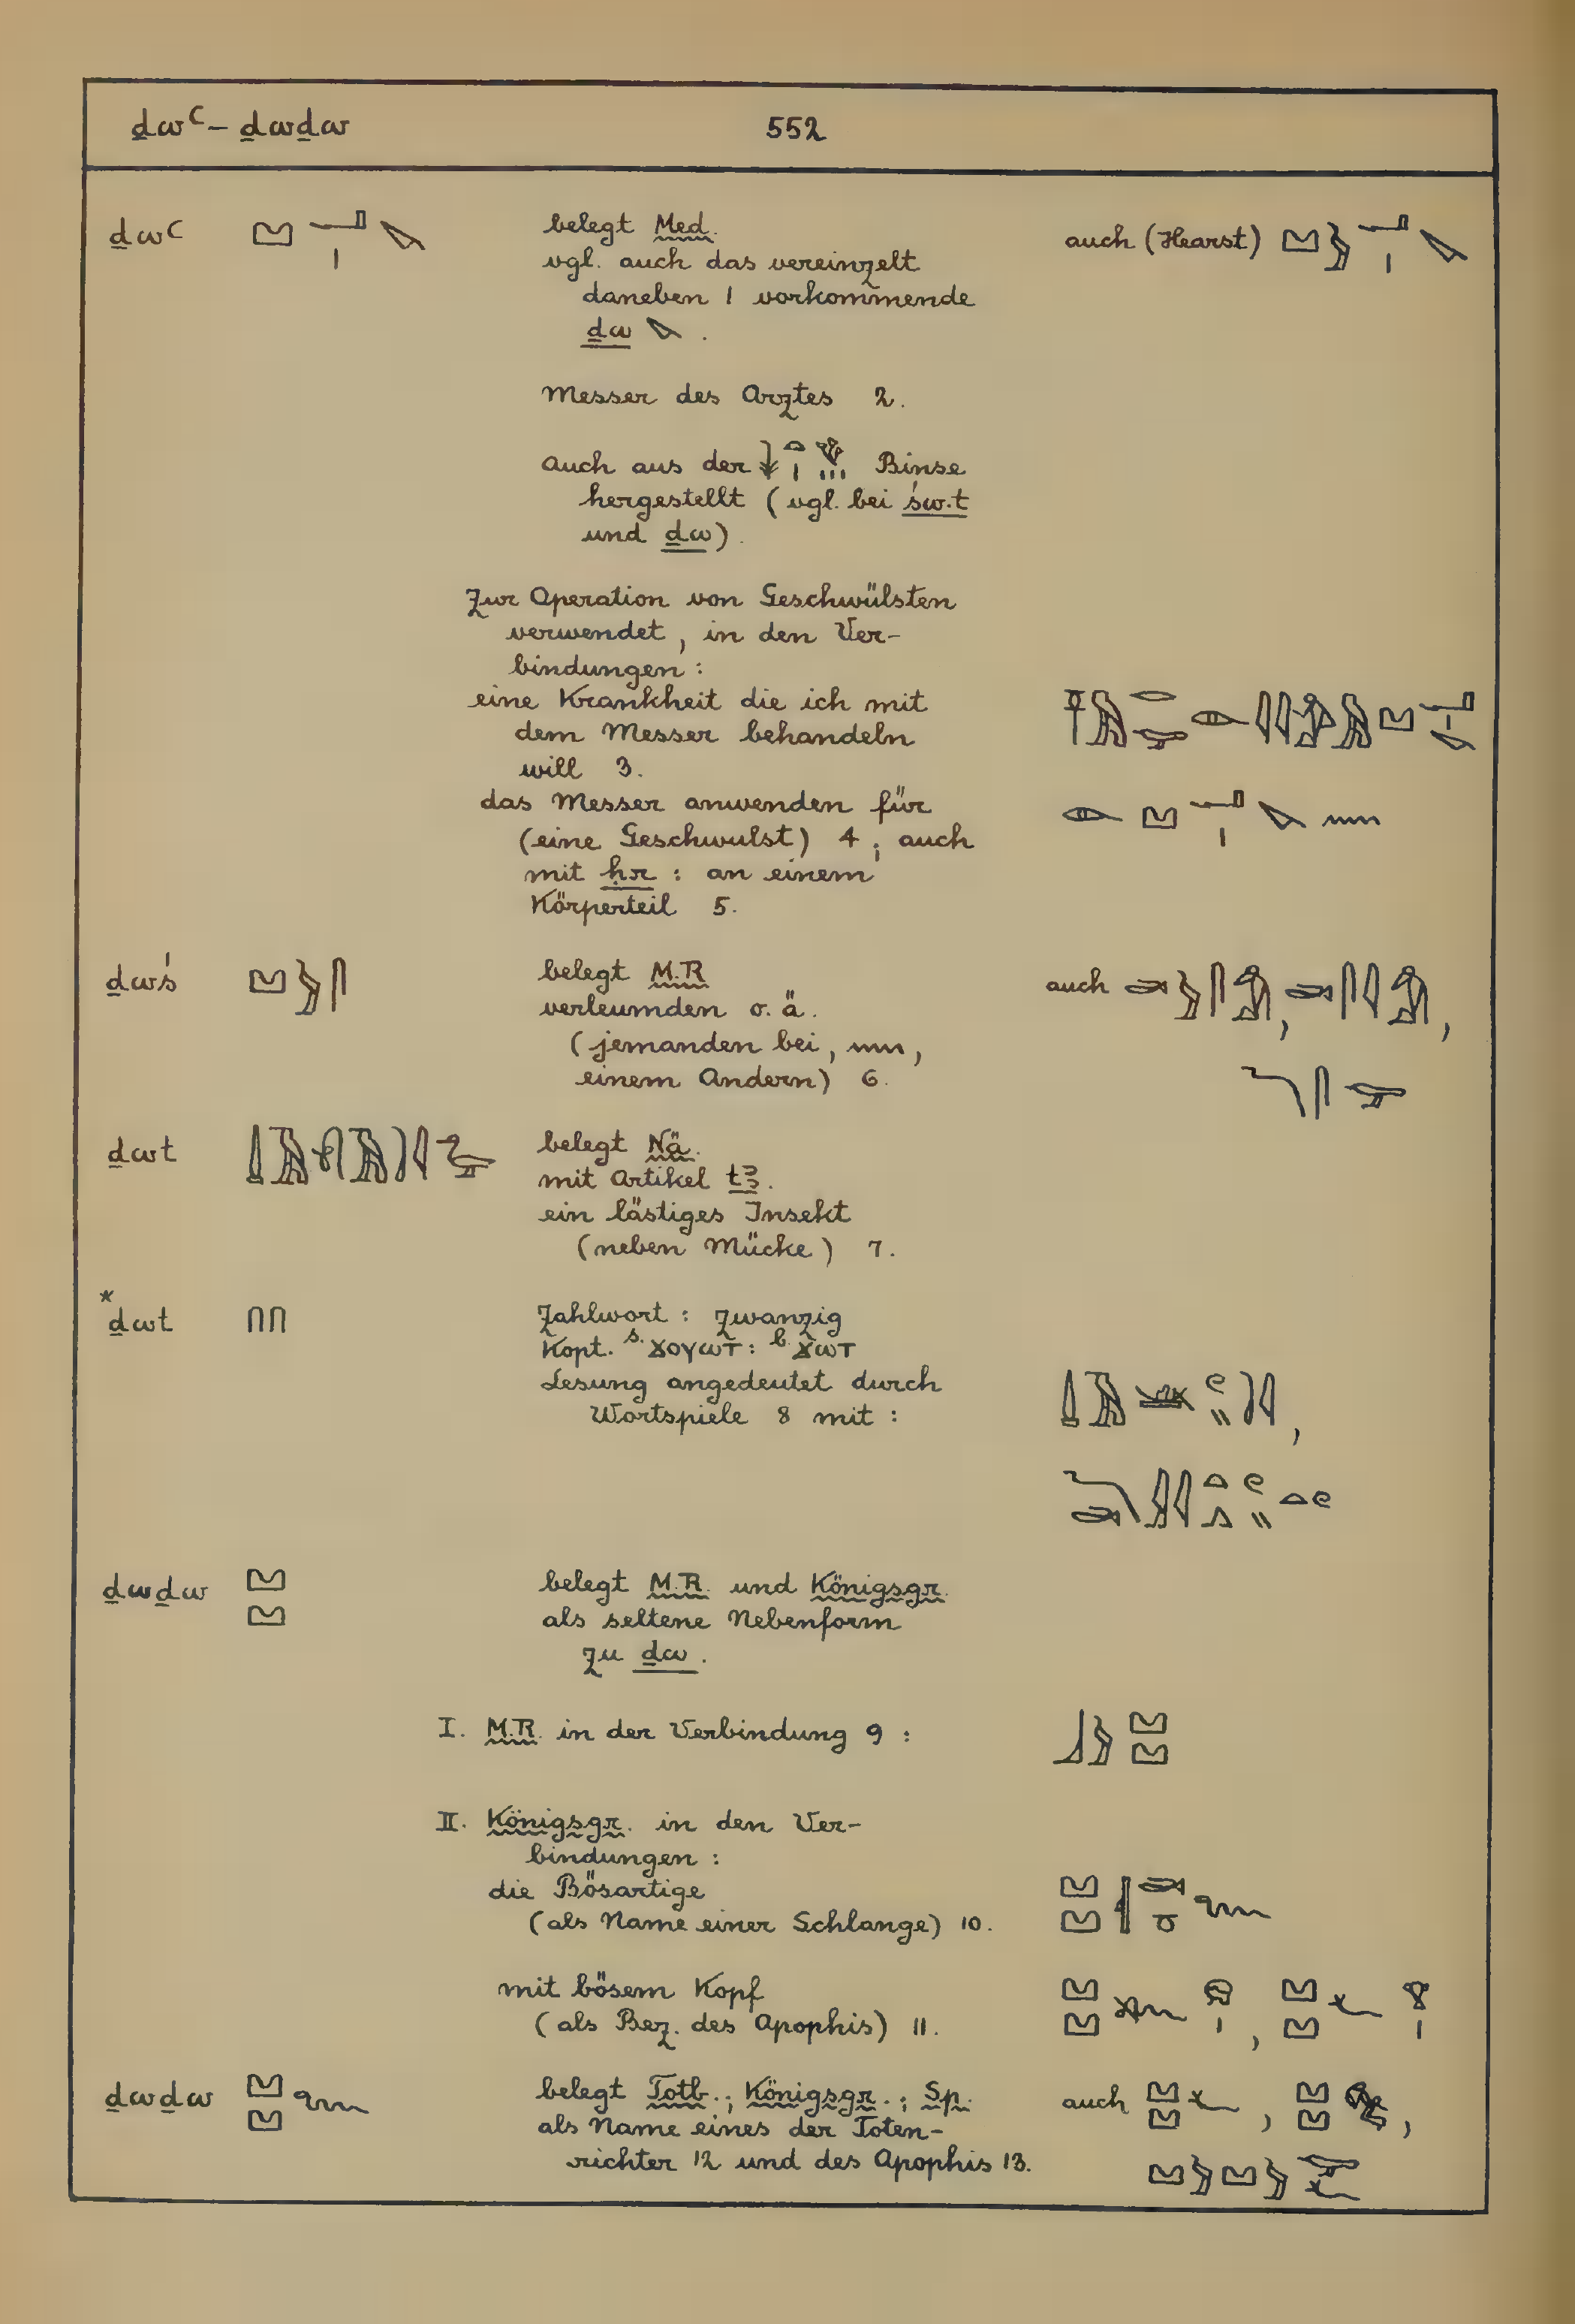 ḏwꜥ – ḏwḏw 552
ḏwꜥ
belegt Med.
auch (Hearst)
vgl. auch das vereinzelt
daneben 1 vorkommende
ḏw .
Messer des Arztes 2.
Auch aus der Binse
hergestellt (vgl. bei św.t
und ḏw).
Zur Operation von Geschwülsten
verwendet, in den Ver-
bindungen:
eine Krankheit die ich mit
dem Messer behandeln
will 3.
das Messer anwenden für
(eine Geschwulst) 4; auch
mit ḥr: an einem
Körperteil 5.
ḏwś
belegt M.R.
auch
verleumden o. ä.
(jemanden bei, 𓈖,
einem Andern) 6.
ḏwt
belegt Nä.
mit Artikel tꜣ.
ein lästiges Insekt
(neben Mücke) 7.
*ḏwt 𓎆𓎆
Zahlwort: zwanzig
Kopt. s. ϫⲟⲩⲱⲧ: b. ϫⲱⲧ
Lesung angedeutet durch
Wortspiele 8 mit:
ḏwḏw 𓈋𓈋
belegt M.R. und Königsgr.
als seltene Nebenform
zu ḏw.
I. M.R. in der Verbindung 9:
II. Königsgr. in den Ver-
bindungen:
die Bösartige
(als Name einer Schlange) 10.
mit bösem Kopf
(als Bez. des Apophis) 11.
ḏwḏw
belegt Totb.; Königsgr.; Sp.
auch
als Name eines der Toten-
richter 12 und des Apophis 13.